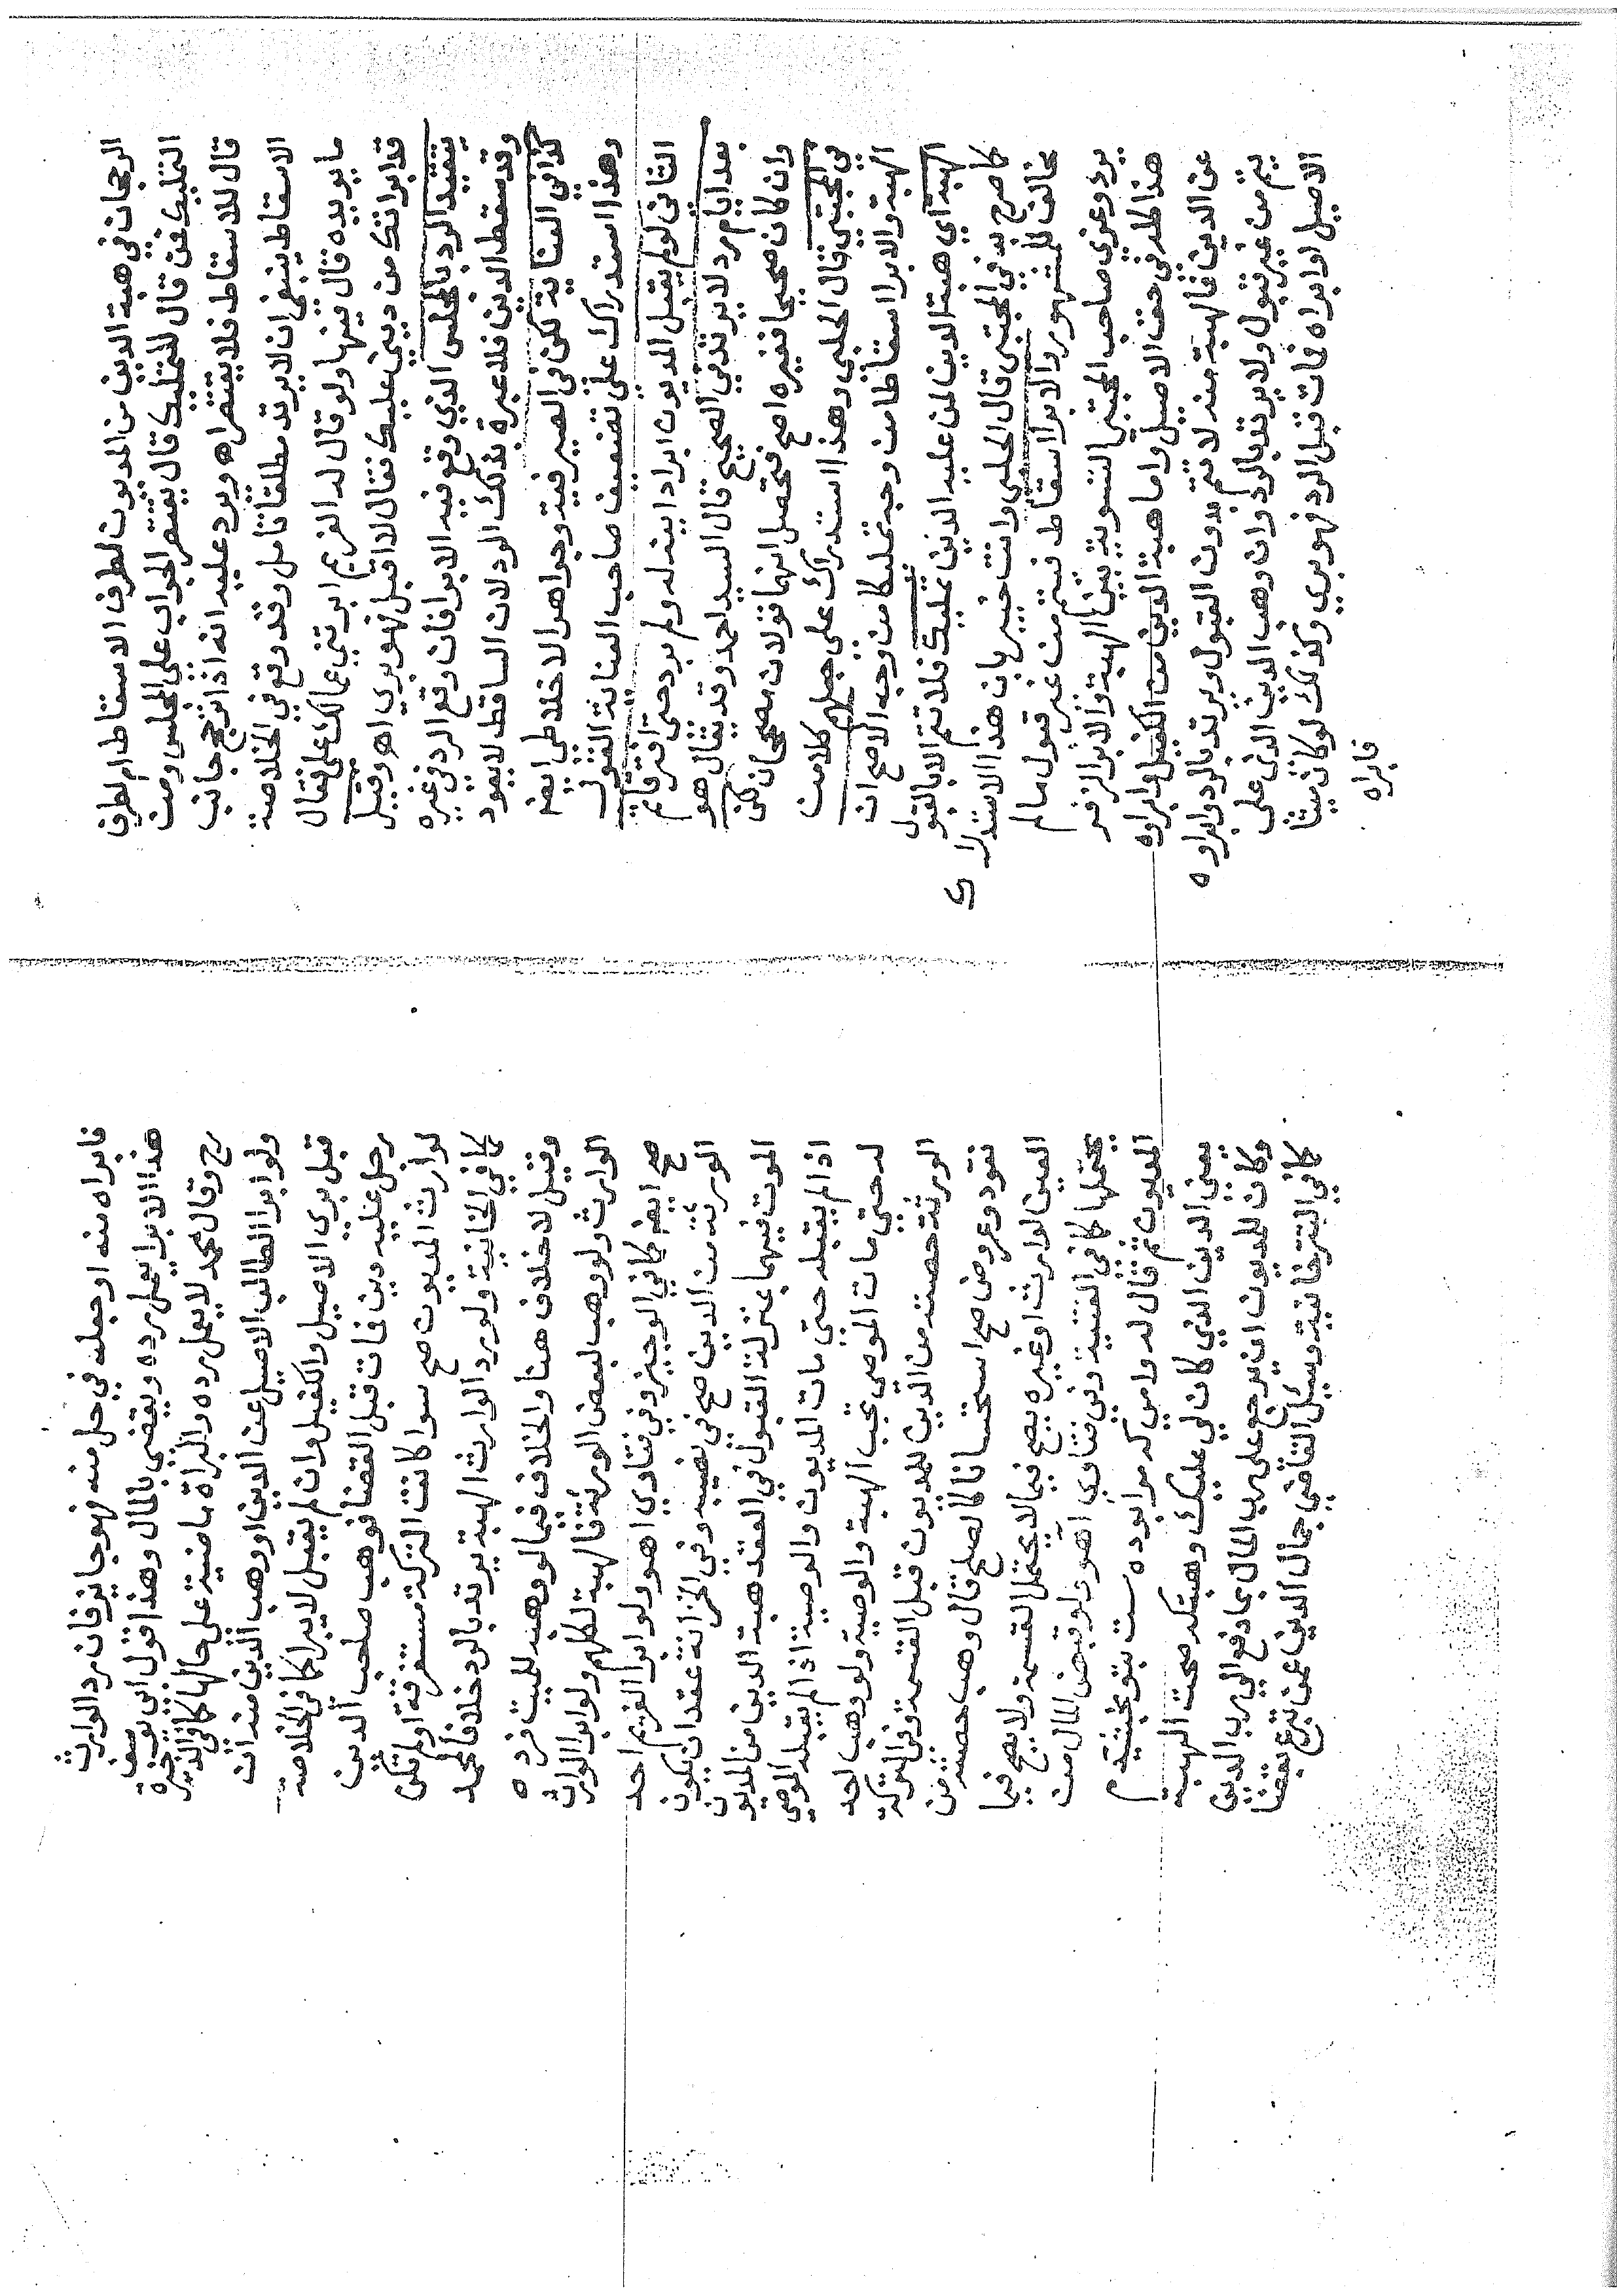 الرجحان في هبة الدين من المديون لطرف الاسقاط ام لطرف
التمليك فمن قال للتمليك قال يقتصر الجواب على المجلس ومن
قال للاسقاط فلا يقتصر اه ويرد عليه انه اذا ترجح جانب
الاسقاط ينبغي ان لا يرتد مطلقا تامل وقد وقع في الخلاصة
ما يويده قال فيها ولو قال له الغريم ابرئني عمالك علي فقال
قد ابراتك من ديني عليك فقال لا اقبل فهو بري اه وقيل
يتقيد الرد بالمجلس الذي وقع فيه الابرا فان وقع الرد في غيره
وقد سقط الدين فلا عبرة بذلك الرد لان الساقط لا يعود
كذا في العناية لكن في الصيرفية وجواهر الاخلاطي ايضا
وهذا استدراك على تضعيف صاحب العناية القول
الثاني لو لم يقبل المديون ابراد ابنه له ولم يرد حتى افترقا ثم
بعد ايام رد لا يرتد في الصحيح قال السيد احمد وقد يقال هو
وان كان صحيحا فغيره اصح فتحصل انهما قولان مصححان لكن
في المجتبى قال الحلبي وهذا استدراك على جعلهم كلا من
الهبة والابرا اسقاطا من وجه تمليكا من وجه الاصح ان
الهبة اي هبة الدين لمن عليه الدين تمليك فلا تتم الا بالقبول
كما صرح به في المجتبى قال الحلبي وانت خبير بان هذا الاستدراك
مخالف للمشهور والابرا اسقاط فيتم من غير قبول ما لم
يرد وعزي صاحب المجتبى التسوية بين الهبة والابرا لزفر
هذا كله في حق الاصيل واما هبة الدين من الكفيل وابراوه
عن الدين فالهبة منه لا تتم بدون القبول ويرتد بالرد وابراوه
يتم من غير قبول ولا يرتد بالرد وان وهب الدين الذي على
الاصيل او ابراه فمات قبل الرد فهو بري وكذلك لو كان ميتا
فابراه
فابراه منه او جعله في حل منه فهو جايز فان رد الوارث
هذا الابرا يعمل رده ويقضي بالمال وهذا قول ابي يوسف
رح وقال محمد لا يعمل رده والبراة ماضية على حالها كما في الذخيرة
ولو ابرا الطالب الاصيل عن الدين او وهب الدين منه ان
قبل بري الاصيل والكفيل وان لم يقبل لا يبرا كما في الخلاصة
رجل عليه دين فمات قبل القضا فوهب صاحب الدين
لوارث المديون صح سوا كانت التركة مستغرقة او لم تكن
كما في الخانية ولو رد الوارث الهبة يرتد بالرد خلافا لمحمد
وقيل لا خلاف هنا والخلاف فيما لو وهبه للميت فرده
الوارث ولو وهب لبعض الورثة فالهبة لكلهم ولو ابرا الوارث
صح ايضا كما في الوجيز وفي فتاوي اهو ولو ابرا الغريم احد
الورثة من الدين صح في نصيبه وفي الخزانة عقدان يكون
الموت فيهما بمنزلة القبول في العقد هبة الدين من المديون
اذا لم يقبله حتى مات المديون والوصية اذا لم يقبله الموصي
له حتى مات الموصي تجب الهبة والوصية ولو وهب احد
الورثة حصته من الدين للمديون قبل القسمة وفي التركة
نقود وعروض صح استحسانا كالصلح قال وهب حصته من
العين لوارث او غيره يصح فيما لا يحتمل القسمة ولا يصح فيما
يحتملها كما في القنية وفي فتاوي آهو لو قبض المال من
المديون ثم قال له وام كه مرا بوده ست بتو بخشيدم
يعني الدين الذي كان لي عليك وهبتكه صحت الهبة
وكان للمديون ان يرجع على رب المال بما دفع الي رب الدين
كما في التترخانية وسيل القاضي جمال الدين عمن تبرع بقضا